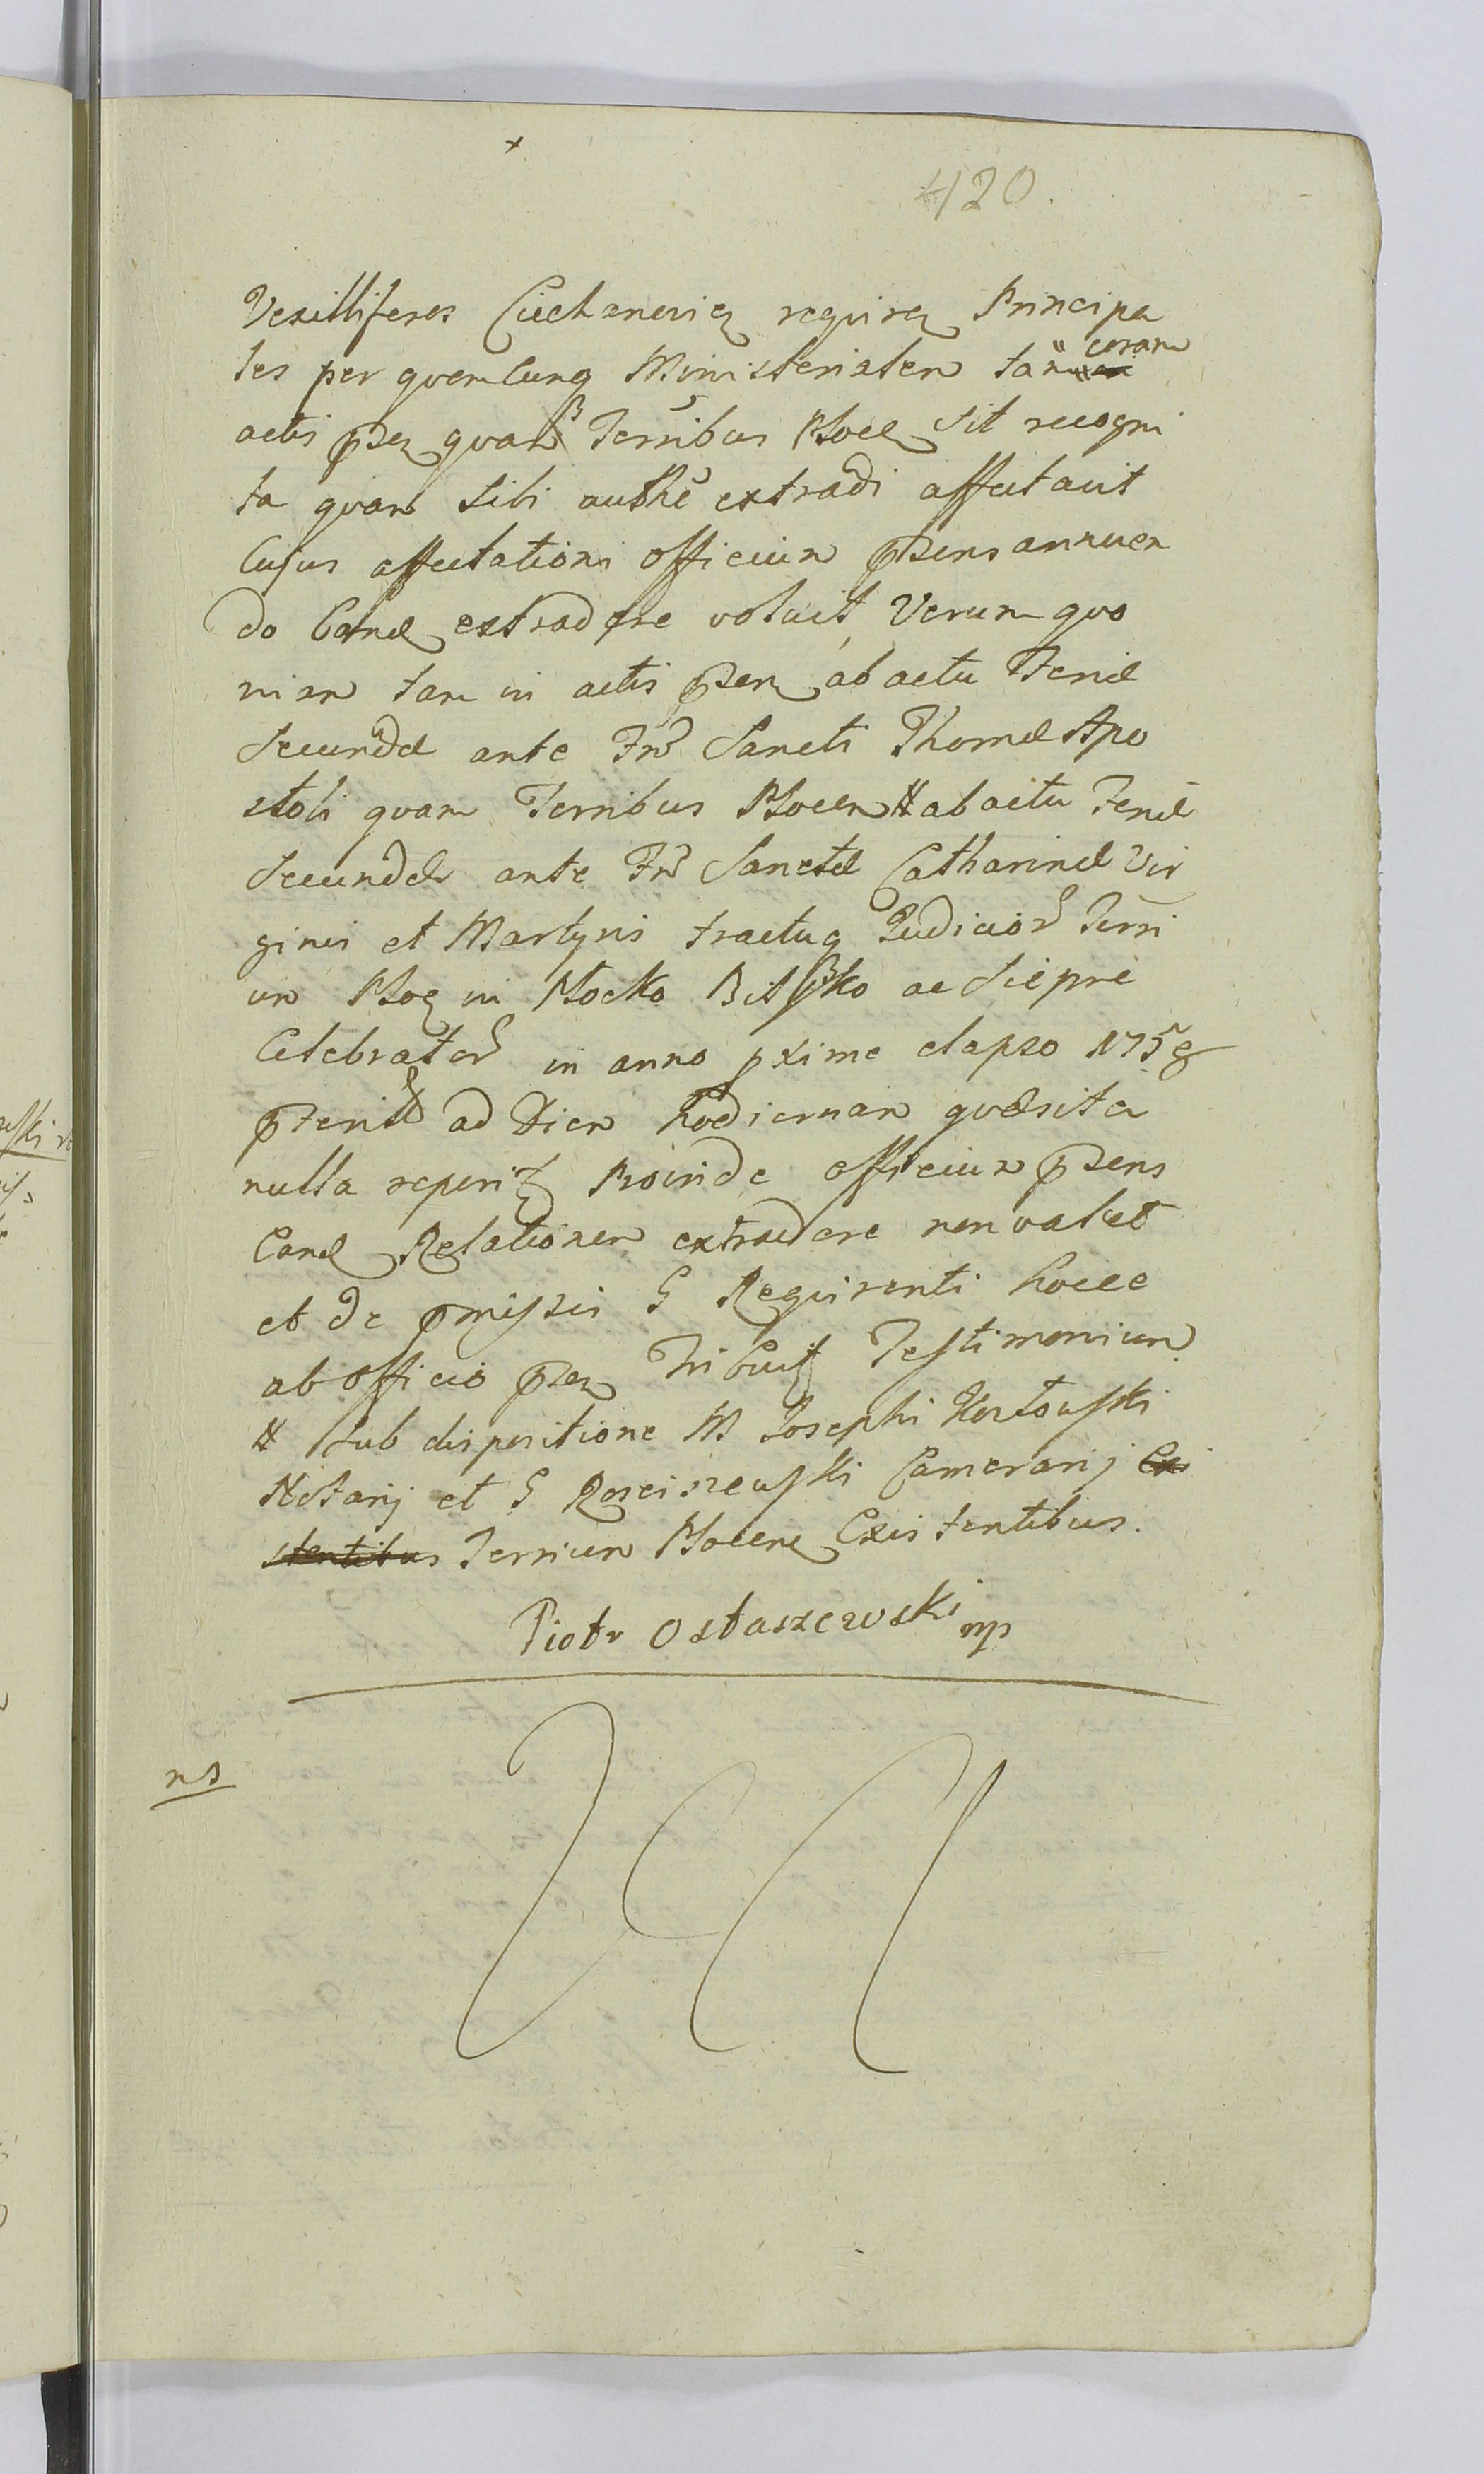 420.
Vexilliferos Ciechanovien requiren Principa
les per quemcunq Ministerialem tam coram
actis psen quam Terribus Plocen sit recogni
ta quam sibi authe extradi affectavit
Cujus affectationi officium psens annuen
do Eand extradere voluit, Verum quo
niam tam in actis psen ab actu Feriæ
secundæ ante Fm Sancti Thomæ Apo
stoli quam Terribus Plocen # ab actu Feriæ
secundæ ante Fm Sanctæ Catharinæ Vir
ginis et Martyris tractuq Judicior Terri
um Ploc in Plocko Bilsko ac Sieprc
Celebrator in anno pxime elapso 1758
ad Diem hodiernam quæsita
nulla reperit Proinde officium psens
Eand Relationem extradere non valet
et de pmissis G Requirenti hocce
ab officio psen Tribuit Testimonium
# sub dispositione M Josephi
Notarij et G Rosciszewski Camerarij Exi
stentibus Terrium Plocen Existentibus.
Piotr Ostaszewski mp
ns